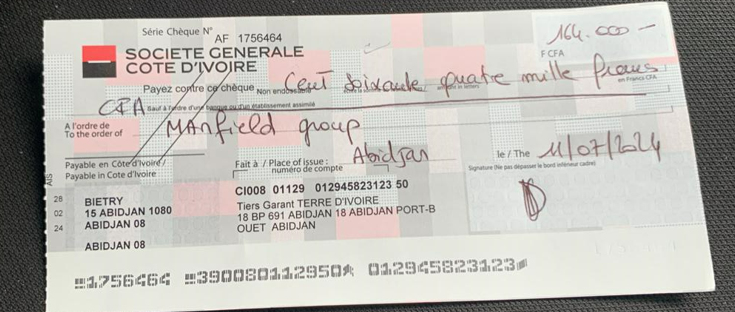 Série Chèque N° AF 1756464
164.000 —
F CFA
SOCIETE GENERALE
COTE D'IVOIRE
Payez contre ce chèque Non endossable Cent soixante quatre mille francs
en Francs CFA
CFA Sauf à l'ordre d'une banque ou d'un établissement assimilé
A l'ordre de
To the order of MANfield group
Payable en Côte d'Ivoire /
Payable in Cote d'Ivoire
Fait à / Place of issue : Abidjan
le / The 11/07/2024
numéro de compte
Signature (Ne pas dépasser le bord inférieur cadre)
CI008 01129 012945823123 50
28 BIETRY
02 15 ABIDJAN 1080
24 ABIDJAN 08
ABIDJAN 08
Tiers Garant TERRE D'IVOIRE
18 BP 691 ABIDJAN 18 ABIDJAN PORT-B
OUET ABIDJAN
1756464 390080112950 012945823123